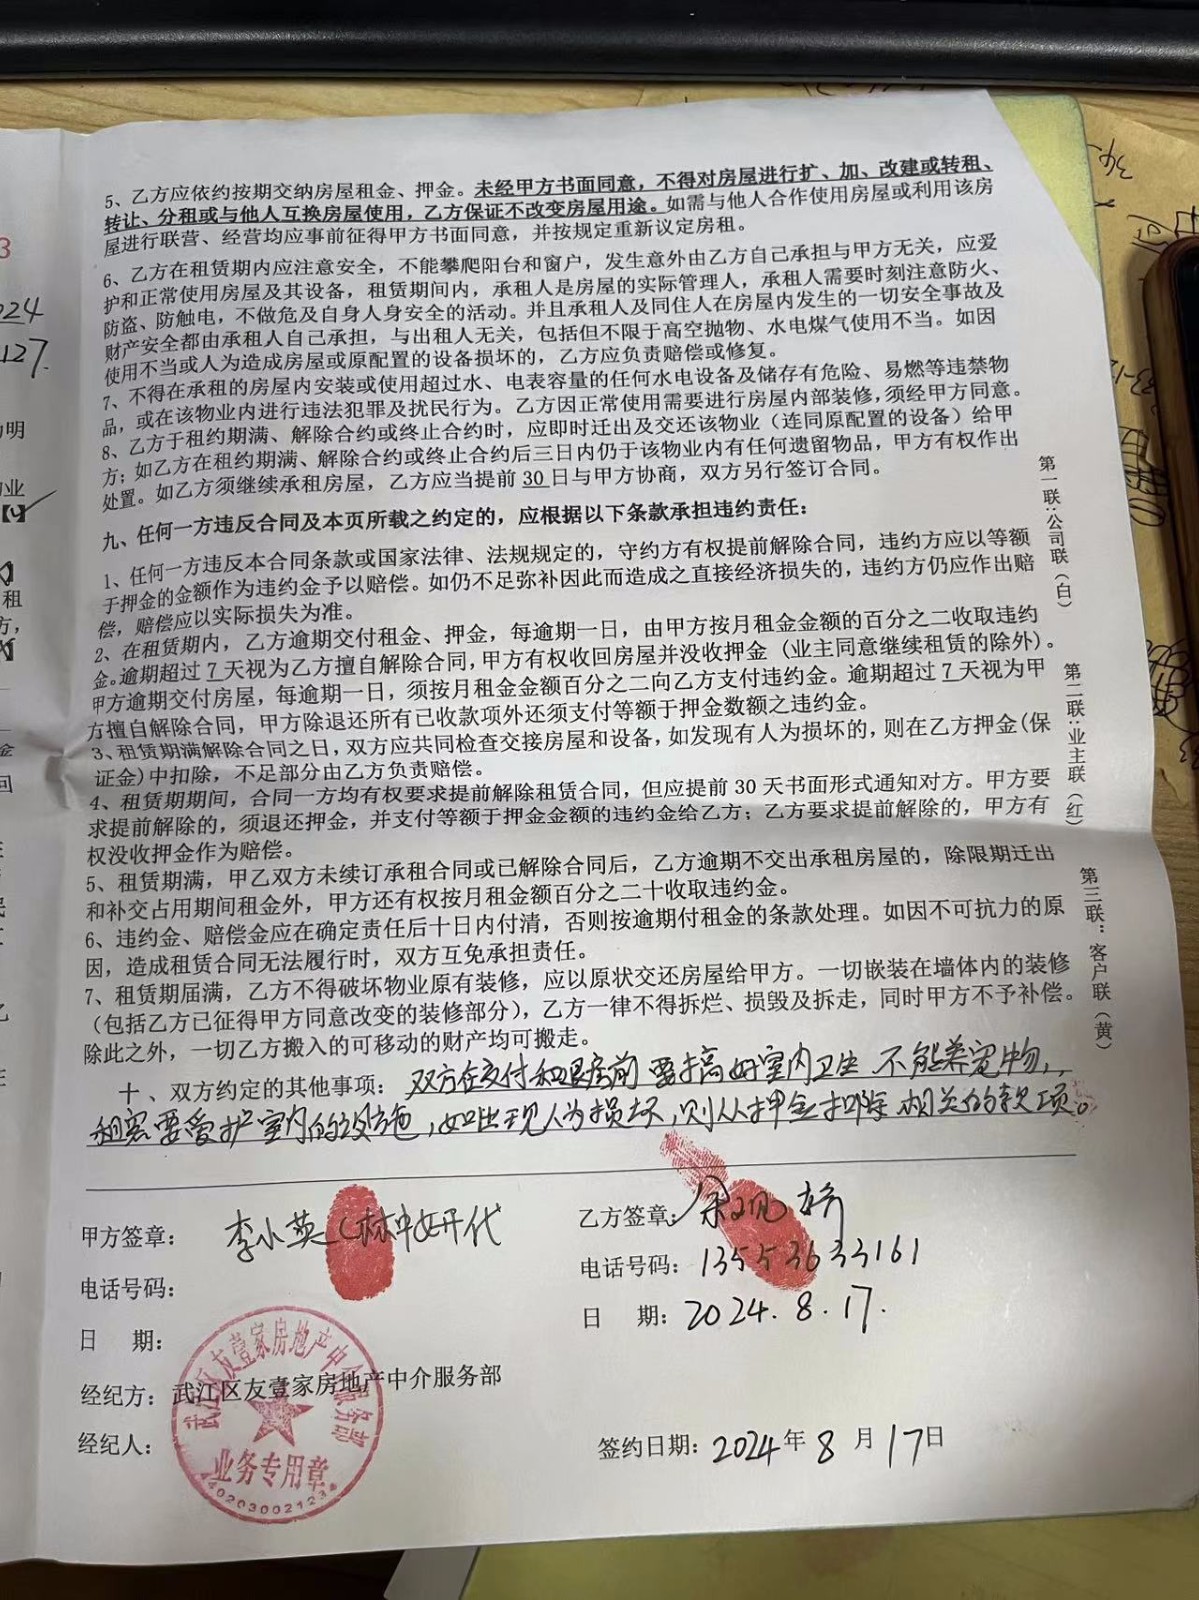 5、乙方应依约按期交纳房屋租金、押金。未经甲方书面同意，不得对房屋进行扩、加、改建或转租、
转让、分租或与他人互换房屋使用，乙方保证不改变房屋用途。如需与他人合作使用房屋或利用该房
屋进行联营、经营均应事前征得甲方书面同意，并按规定重新议定房租。
6、乙方在租赁期内应注意安全，不能攀爬阳台和窗户，发生意外由乙方自己承担与甲方无关，应爱
护和正常使用房屋及其设备，租赁期间内，承租人是房屋的实际管理人，承租人需要时刻注意防火、
防盗、防触电，不做危及自身人身安全的活动。并且承租人及同住人在房屋内发生的一切安全事故及
财产安全都由承租人自己承担，与出租人无关，包括但不限于高空抛物、水电煤气使用不当。如因
使用不当或人为造成房屋或原配置的设备损坏的，乙方应负责赔偿或修复。
7、不得在承租的房屋内安装或使用超过水、电表容量的任何水电设备及储存有危险、易燃等违禁物
品，或在该物业内进行违法犯罪及扰民行为。乙方因正常使用需要进行房屋内部装修，须经甲方同意。
8、乙方于租约期满、解除合约或终止合约时，应即时迁出及交还该物业（连同原配置的设备）给甲
方；如乙方在租约期满、解除合约或终止合约后三日内仍于该物业内有任何遗留物品，甲方有权作出
处置。如乙方须继续承租房屋，乙方应当提前 30 日与甲方协商，双方另行签订合同。
九、任何一方违反合同及本页所载之约定的，应根据以下条款承担违约责任：
1、任何一方违反本合同条款或国家法律、法规规定的，守约方有权提前解除合同，违约方应以等额
于押金的金额作为违约金予以赔偿。如仍不足弥补因此而造成之直接经济损失的，违约方仍应作出赔
偿，赔偿应以实际损失为准。
2、在租赁期内，乙方逾期交付租金、押金，每逾期一日，由甲方按月租金金额的百分之二收取违约
金。逾期超过 7 天视为乙方擅自解除合同，甲方有权收回房屋并没收押金（业主同意继续租赁的除外）。
甲方逾期交付房屋，每逾期一日，须按月租金金额百分之二向乙方支付违约金。逾期超过 7 天视为甲
方擅自解除合同，甲方除退还所有已收款项外还须支付等额于押金数额之违约金。
3、租赁期满解除合同之日，双方应共同检查交接房屋和设备，如发现有人为损坏的，则在乙方押金(保
证金)中扣除，不足部分由乙方负责赔偿。
4、租赁期期间，合同一方均有权要求提前解除租赁合同，但应提前 30 天书面形式通知对方。甲方要
求提前解除的，须退还押金，并支付等额于押金金额的违约金给乙方；乙方要求提前解除的，甲方有
权没收押金作为赔偿。
5、租赁期满，甲乙双方未续订承租合同或已解除合同后，乙方逾期不交出承租房屋的，除限期迁出
和补交占用期间租金外，甲方还有权按月租金额百分之二十收取违约金。
6、违约金、赔偿金应在确定责任后十日内付清，否则按逾期付租金的条款处理。如因不可抗力的原
因，造成租赁合同无法履行时，双方互免承担责任。
7、租赁期届满，乙方不得破坏物业原有装修，应以原状交还房屋给甲方。一切嵌装在墙体内的装修
（包括乙方已征得甲方同意改变的装修部分），乙方一律不得拆烂、损毁及拆走，同时甲方不予补偿。
除此之外，一切乙方搬入的可移动的财产均可搬走。
十、双方约定的其他事项：双方在交付和退房前要搞好室内卫生 不能养宠物，
租客要爱护室内的设施，如出现人为损坏，则从押金扣除相关的款项。
第一联：公司联（白）
第二联：业主联（红）
第三联：客户联（黄）
甲方签章：李小英（林中妍代
电话号码：
日 期：
经纪方：武江区友壹家房地产中介服务部
经纪人：
乙方签章：余
电话号码：13553633161
日 期：2024.8.17.
签约日期：2024年 8 月 17日
武江区友壹家房地产中介服务部
业务专用章
224
127.
3